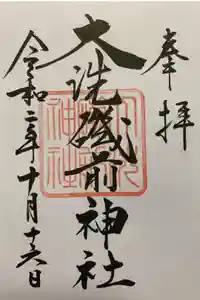 奉拝
大洗磯前神社
令和二年十月十六日